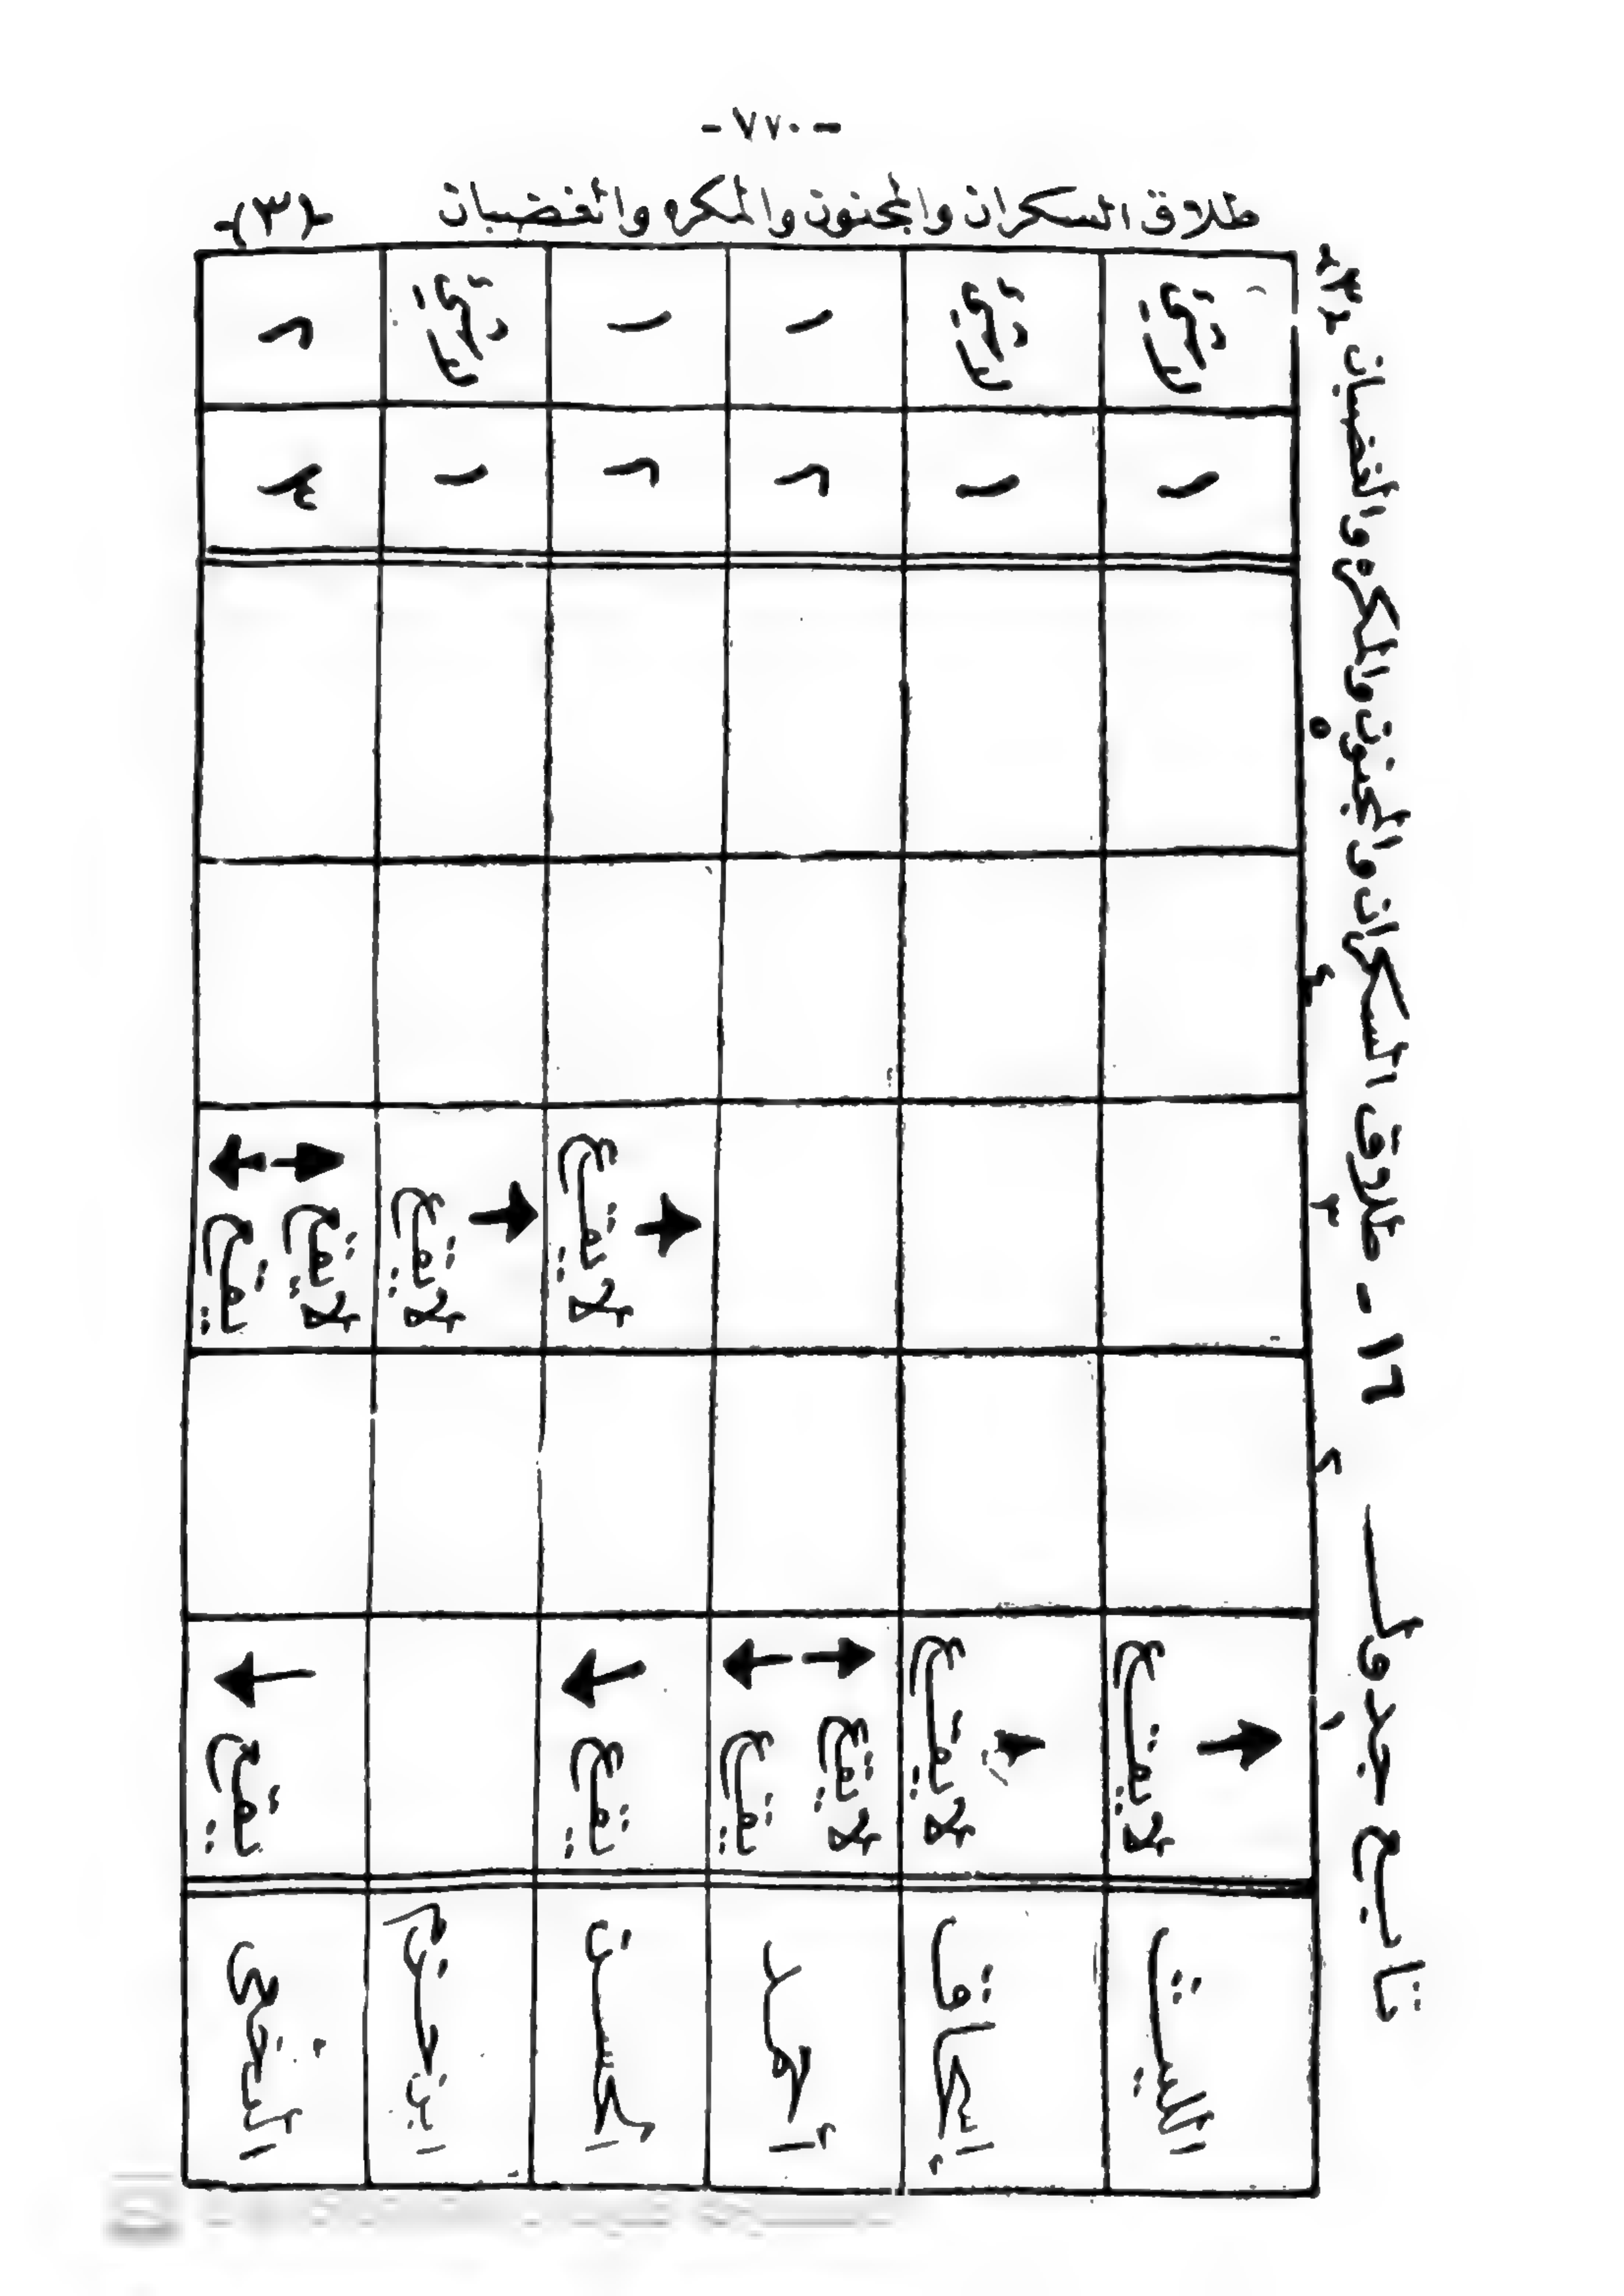 - ٧٧٠ -
طلاق السكران والمجنون والمكره والغضبان -(٣)-
تابع جدول ١٦ - طلاق السكران والمجنون والمكره والغضبان
١ ٢ ٣ ٤ ٥
الليث لا يقع ١
إسحاق لا يقع ١
أحمد لا يقع يقع ٢ ١
الحسن يقع لا يقع ٢ ١
ابن حزم لا يقع ١
النخعي يقع لا يقع يقع ٣ ٢